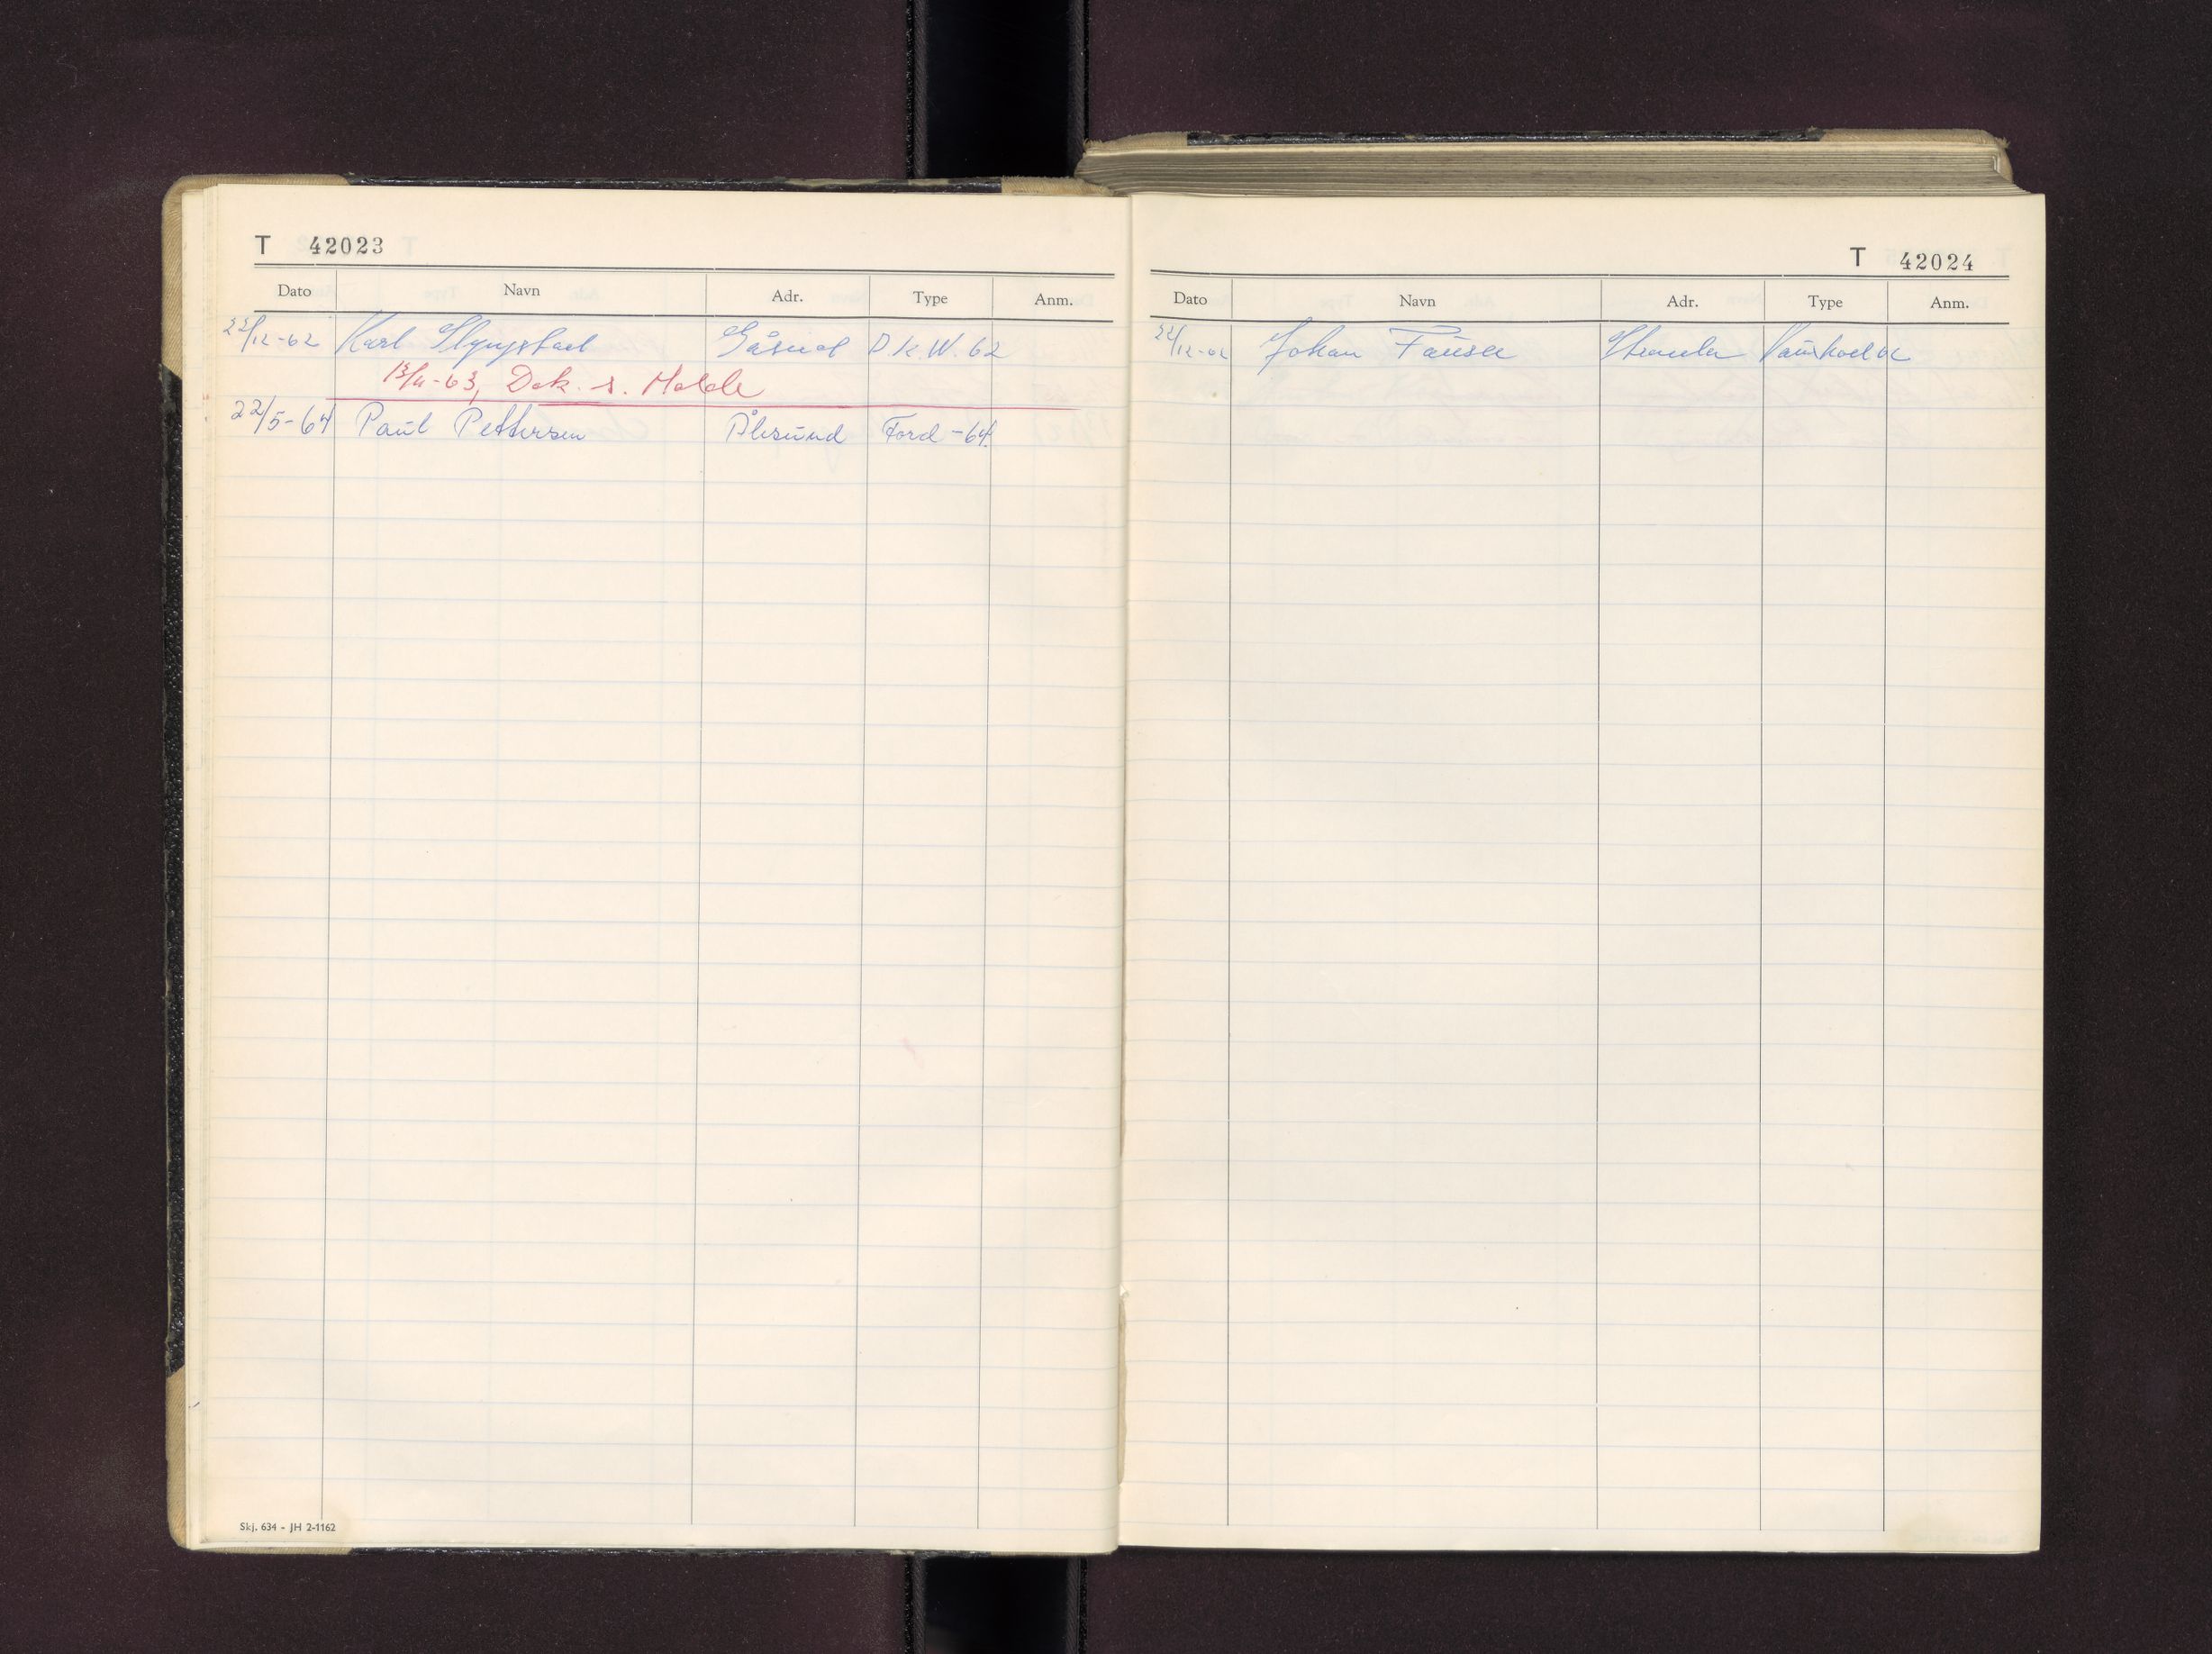 T 42023
Dato Navn Adr. Type Anm.
22/12-62 Karl Slyngstad Gåsnes D.K.W. 62
13/11-63, Dok. s. Molde
22/5-64 Paul Pettersen Ålesund Ford -64
Skj. 634 - JH 2-1162
T 42024
Dato Navn Adr. Type Anm.
22/12-62 Johan Fausa Stranda Vauxhall 62